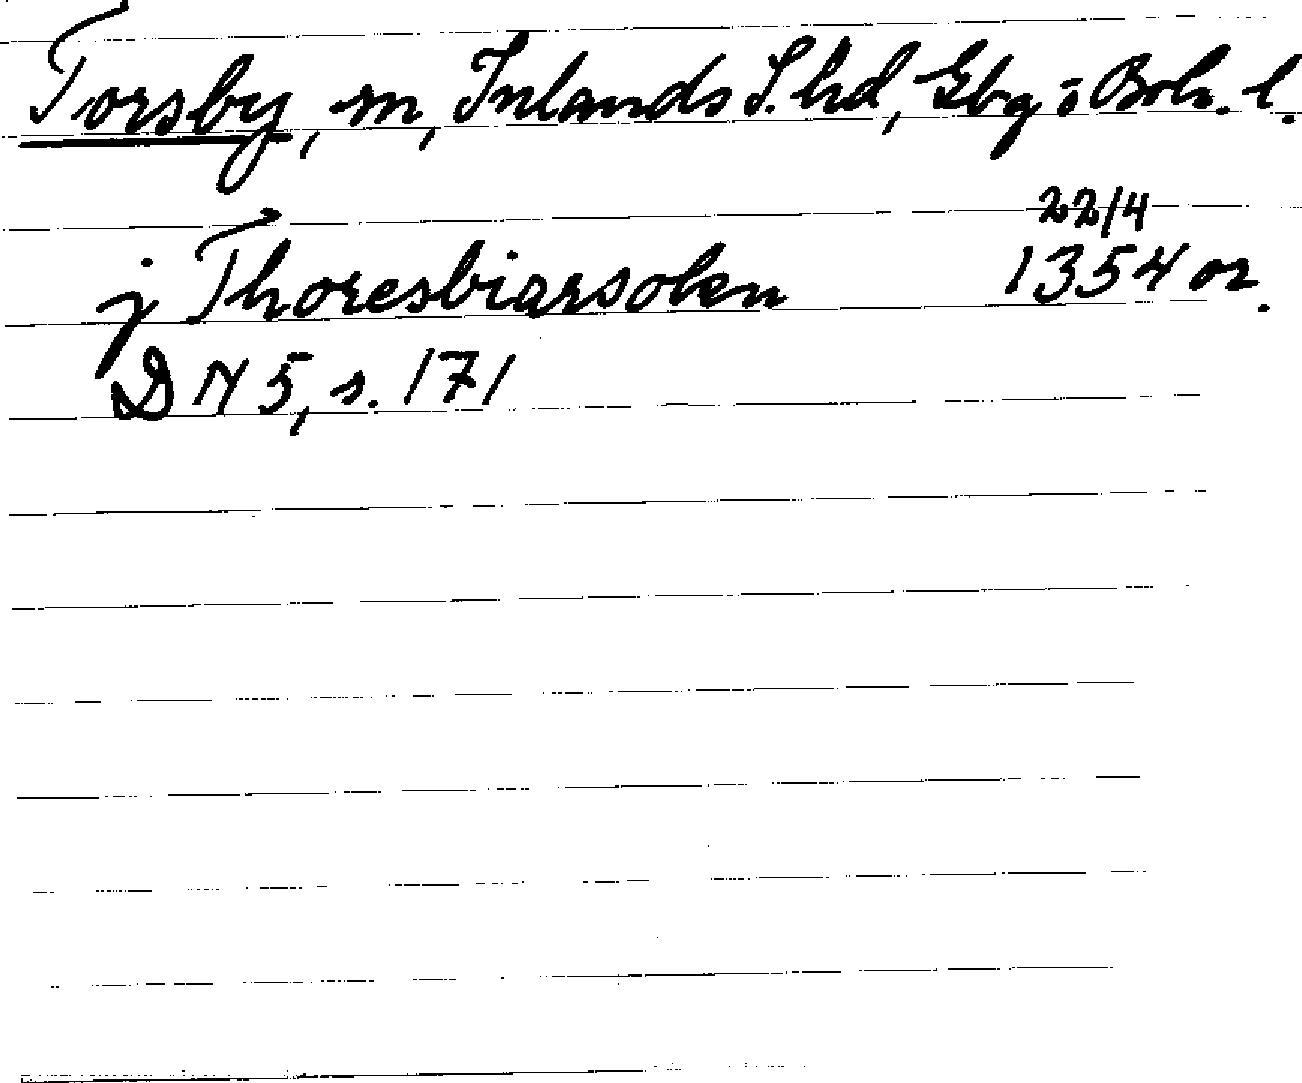 Torsby, sn, Inlands S. hd, Gbg o Boh. l.
22/4
j Thoresbiarsoken 1354 or.
DN 5, s. 171